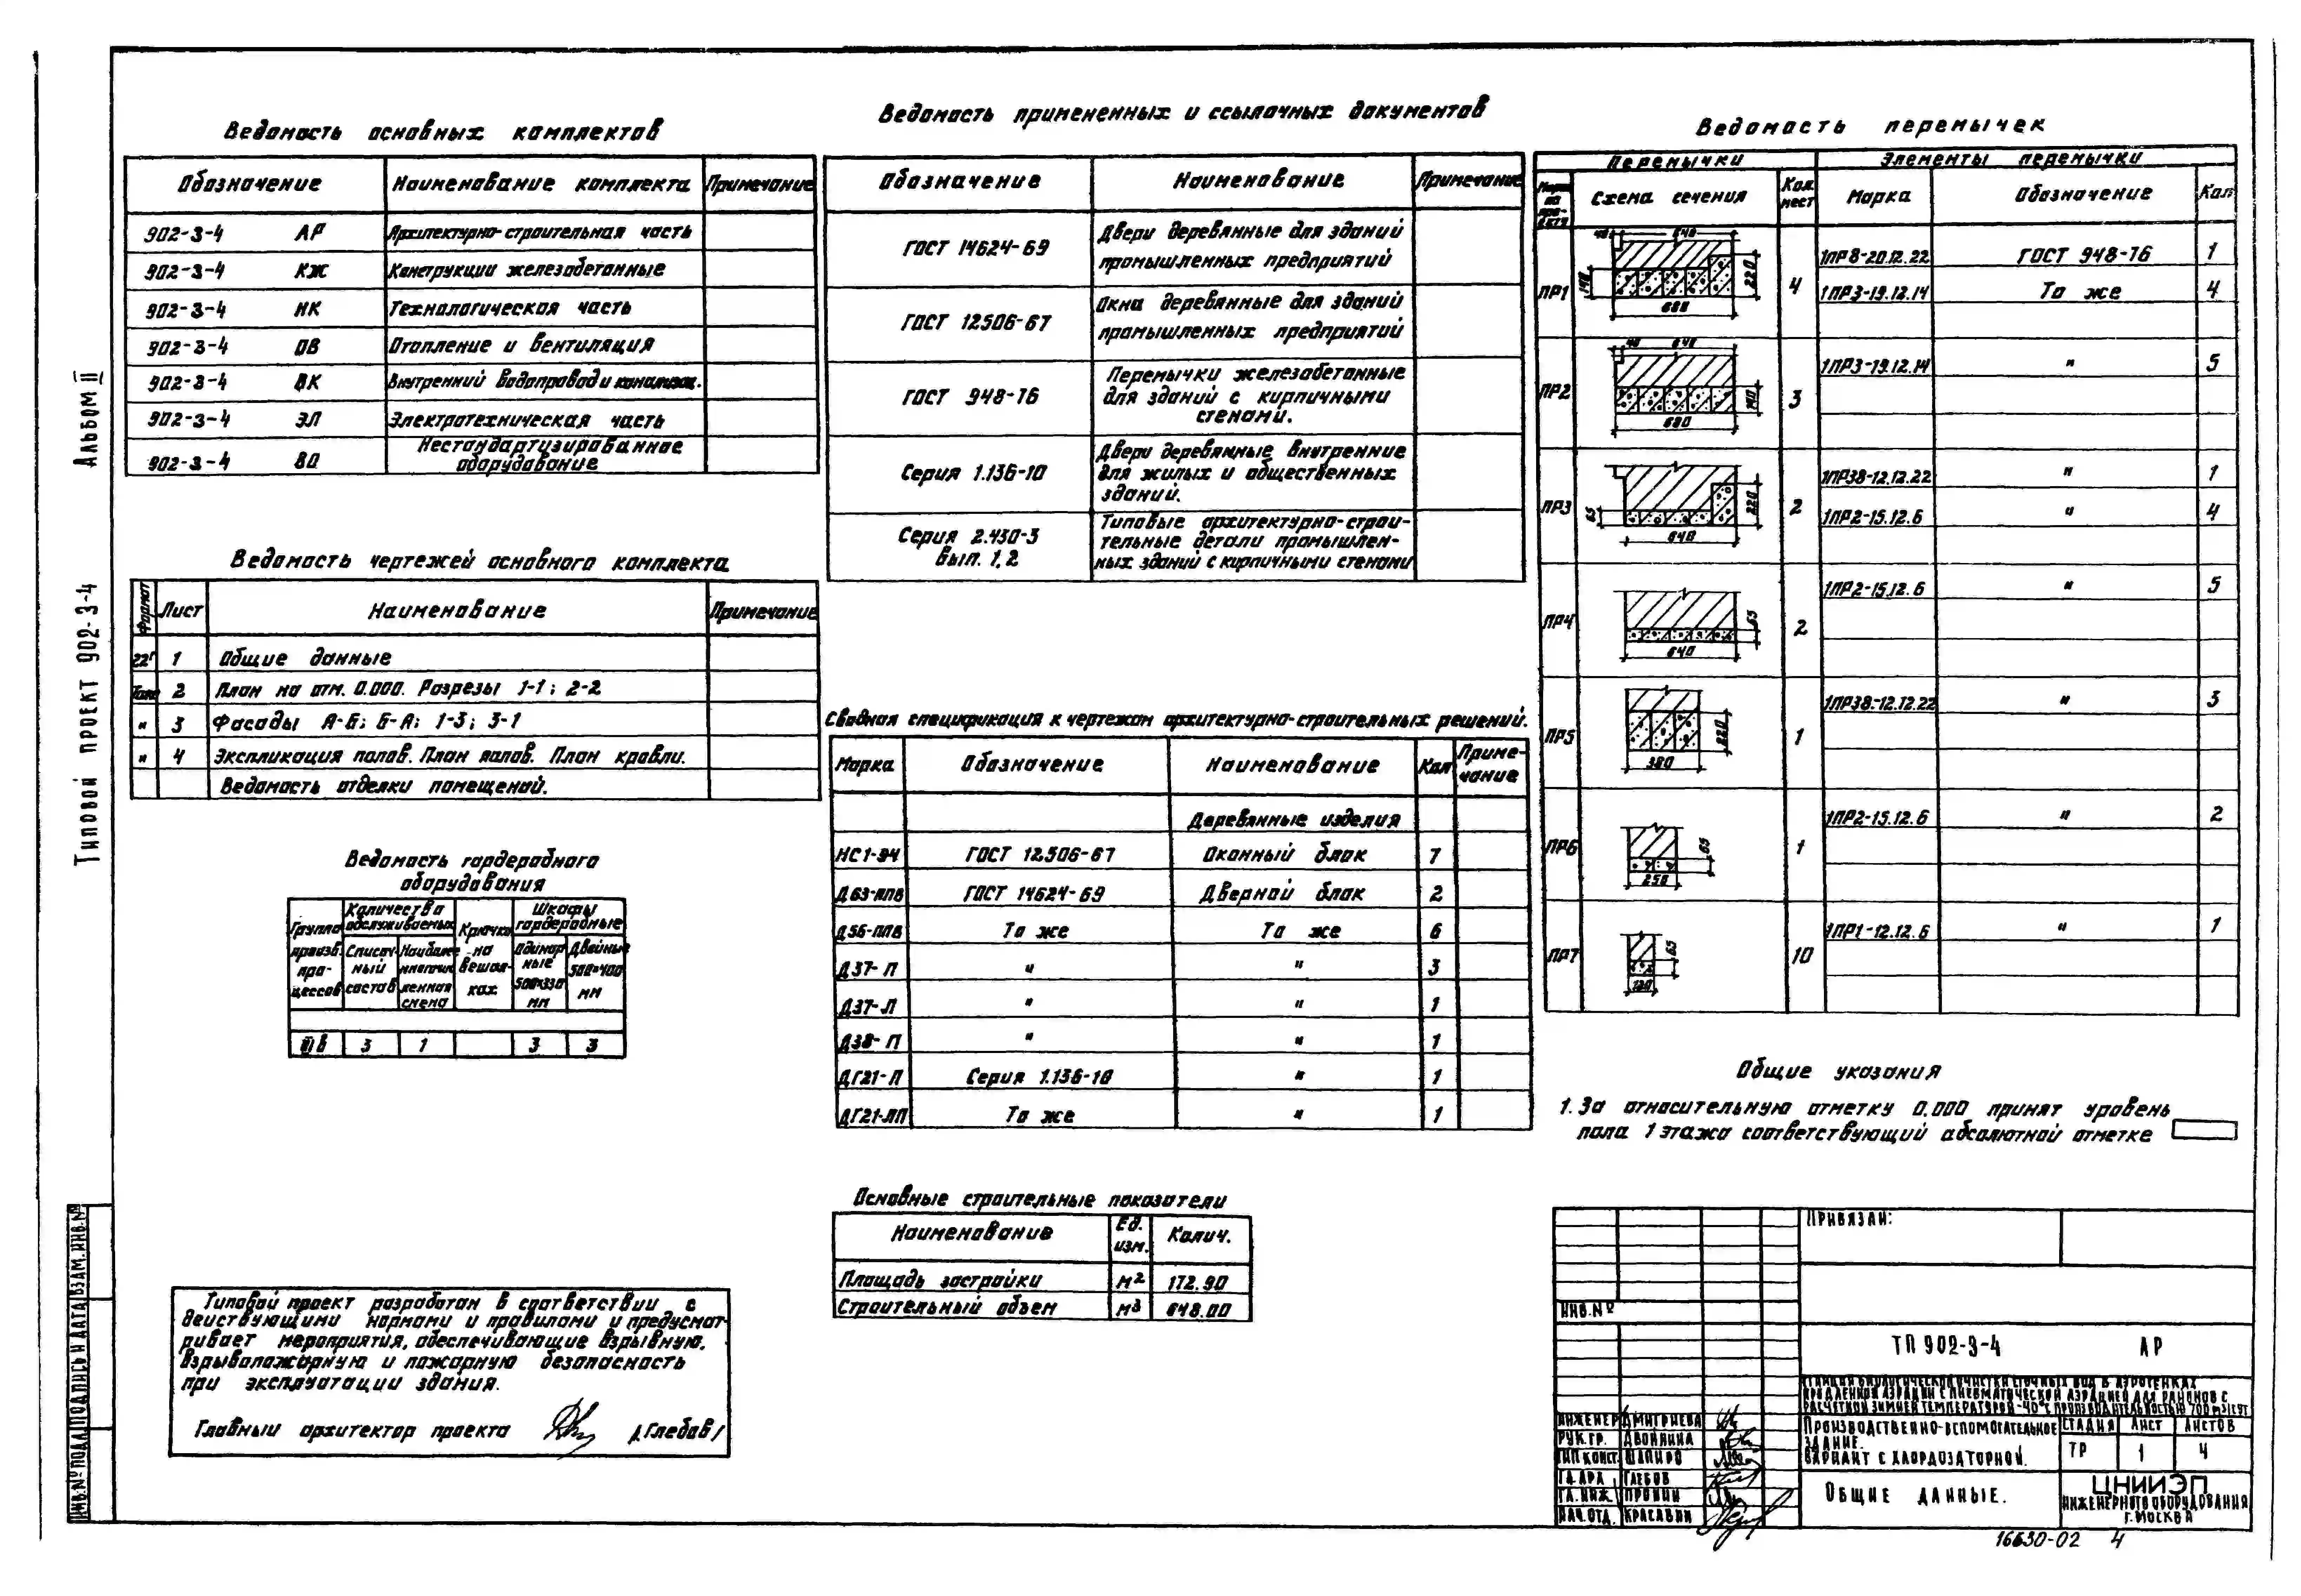 Альбом II
Типовой проект 902-3-4
Ведомость основных комплектов
Обозначение Наименование комплекта Примечание
902-3-4 АР Архитектурно-строительная часть
902-3-4 КЖ Конструкции железобетонные
902-3-4 НК Технологическая часть
902-3-4 ОВ Отопление и вентиляция
902-3-4 ВК Внутренний водопровод и канализац.
902-3-4 ЭЛ Электротехническая часть
902-3-4 ВО Нестандартизированное
оборудование
Ведомость чертежей основного комплекта
Формат Лист Наименование Примечание
22г 1 Общие данные
Тоже 2 План на отм. 0.000. Разрезы 1-1; 2-2
" 3 Фасады А-Б; Б-А; 1-3; 3-1
" 4 Экспликация полов. План полов. План кровли.
Ведомость отделки помещений.
Ведомость гардеробного
оборудования
Группа произв. процессов
Количество обслуживаемых
Списочный состав
Наиболее многочисленная смена
Крючки на вешалках
Шкафы гардеробные
Одинарные 500×330 мм
Двойные 500×400 мм
III в 3 1 3 3
Типовой проект разработан в соответствии с
действующими нормами и правилами и предусмат-
ривает мероприятия, обеспечивающие взрывную,
взрывопожарную и пожарную безопасность
при эксплуатации здания.
Главный архитектор проекта /Глебов/
Ведомость примененных и ссылочных документов
Обозначение Наименование Примечание
ГОСТ 14624-69 Двери деревянные для зданий
промышленных предприятий
ГОСТ 12506-67 Окна деревянные для зданий
промышленных предприятий
ГОСТ 948-76 Перемычки железобетонные
для зданий с кирпичными
стенами.
Серия 1.136-10 Двери деревянные внутренние
для жилых и общественных
зданий.
Серия 2.430-3 Вып. 1,2 Типовые архитектурно-строи-
тельные детали промышлен-
ных зданий с кирпичными стенами
Сводная спецификация к чертежам архитектурно-строительных решений.
Марка Обозначение Наименование Кол Приме-
чание
Деревянные изделия
НС1-94 ГОСТ 12506-67 Оконный блок 7
Д63-ППВ ГОСТ 14624-69 Дверной блок 2
Д56-ППВ То же То же 6
Д37-П " " 3
Д37-Л " " 1
Д38-П " " 1
ДГ21-П Серия 1.136-10 " 1
ДГ21-ЛП То же " 1
Основные строительные показатели
Наименование Ед. изм. Колич.
Площадь застройки м2 172.90
Строительный объем м3 648.00
Ведомость перемычек
Перемычки Элементы перемычки
Марка по проекту Схема сечения Кол. мест Марка Обозначение Кол
ПР1 40 640 140 220 680 4 1ПР8-20.12.22 ГОСТ 948-76 1
1ПР3-19.12.14 То же 4
ПР2 40 640 140 680 3 1ПР3-19.12.14 " 5
ПР3 65 220 640 2 1ПР38-12.12.22 " 1
1ПР2-15.12.6 " 4
ПР4 65 640 2 1ПР2-15.12.6 " 5
ПР5 220 380 1 1ПР38-12.12.22 " 3
ПР6 65 250 1 1ПР2-15.12.6 " 2
ПР7 65 120 10 1ПР1-12.12.6 " 1
Общие указания
1. За относительную отметку 0.000 принят уровень
пола 1 этажа соответствующий абсолютной отметке
Привязан:
Инв.№
ТП 902-3-4 АР
Станция биологической очистки сточных вод в аэротенках
продленной аэрации с пневматической аэрацией для районов с
расчетной зимней температурой -40°С производительностью 700 м3/сут
Инженер Дмитриева
Рук.гр. Двойнина
Гип конст. Шапиро
Гл.арх. Глебов
Гл.инж. Пронин
Нач.отд. Красавин
Производственно-вспомогательное
здание.
Вариант с хлордозаторной.
Стадия Лист Листов
ТР 1 4
Общие данные.
ЦНИИЭП
инженерного оборудования
г.Москва
16630-02 4
Инв.№ подл Подпись и дата Взам.инв.№